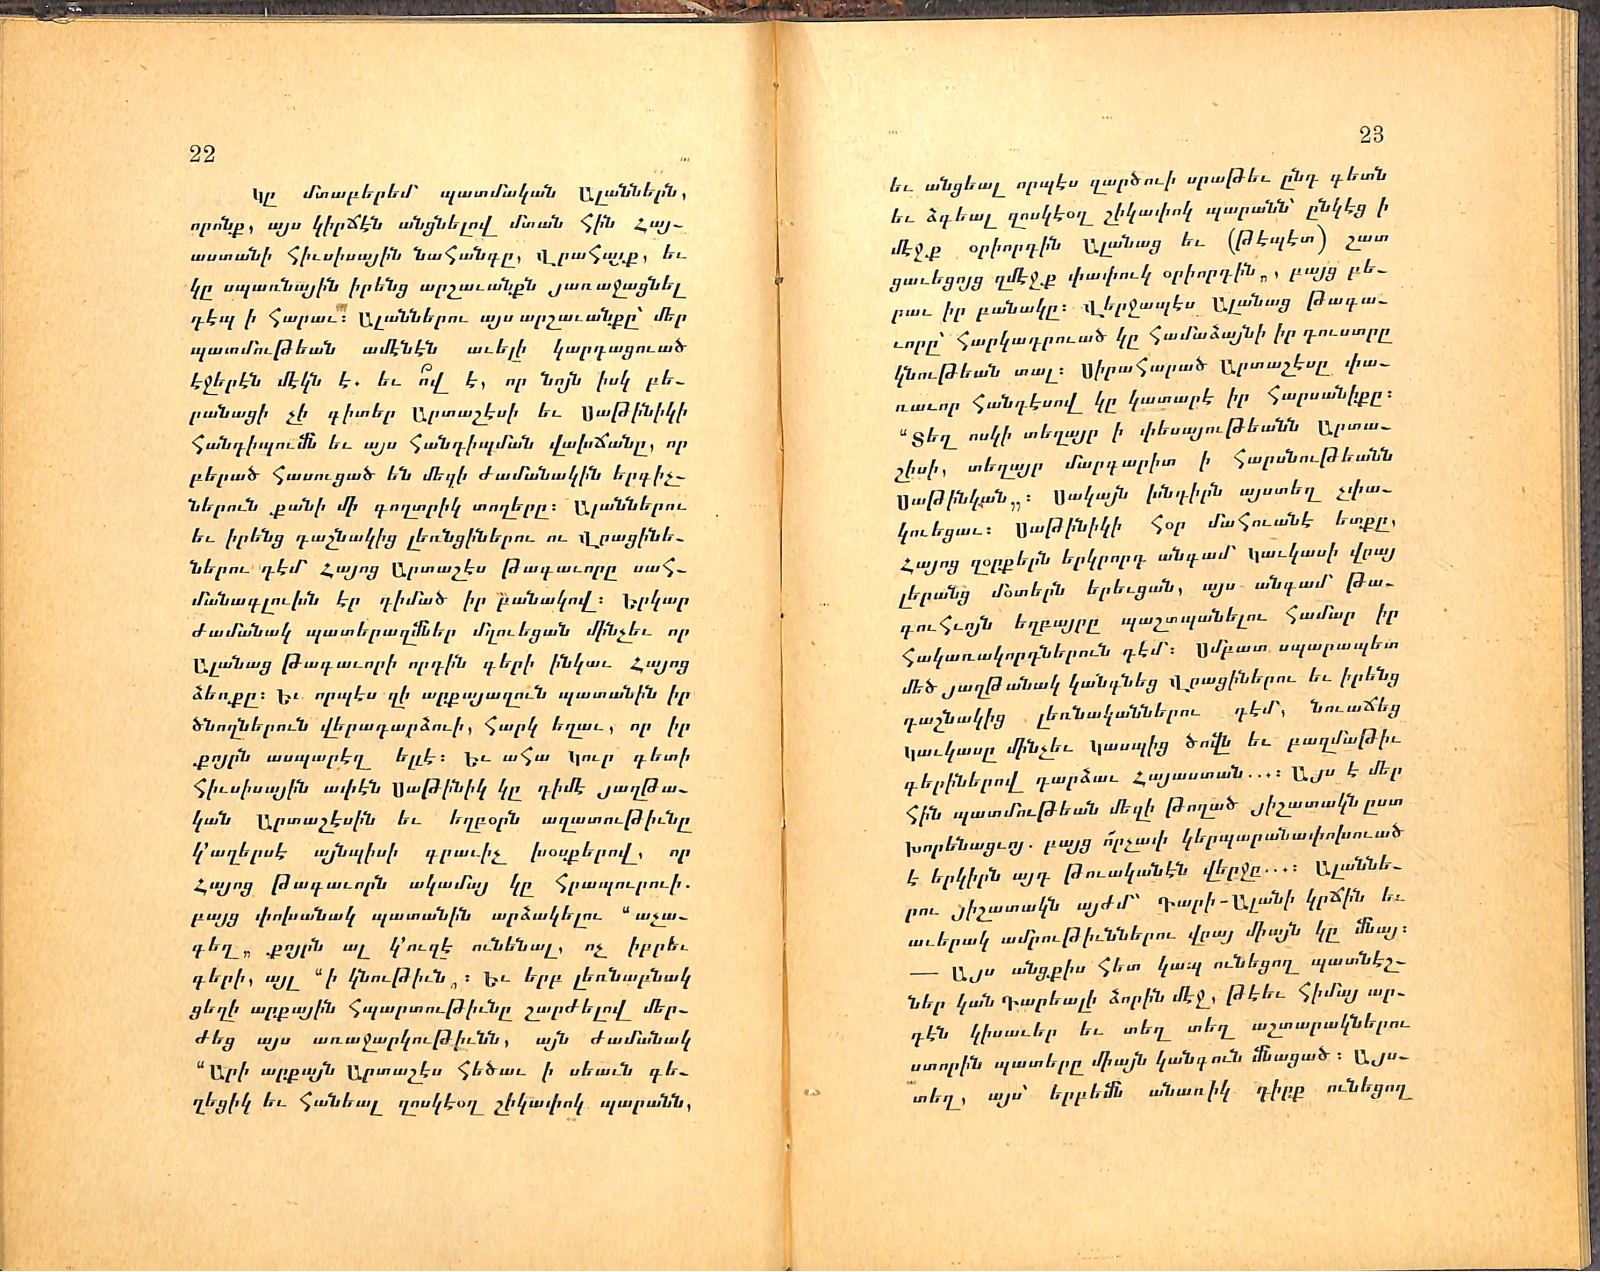 22
Կը մտաբերեմ պատմական Ալաններն,
որոնք, այս կիրճէն անցնելով մտան հին Հայ-
աստանի հիւսիսային նահանգը, Վրահայք, եւ
կը սպառնային իրենց արշաւանքն յառաջացնել
դէպ ի հարաւ: Ալաններու այս արշաւանքը՝ մեր
պատմութեան ամէնէն աւելի կարդացուած
էջերէն մէկն է. եւ ո՞վ է, որ նոյն իսկ բե-
րանացի չի գիտեր Արտաշէսի եւ Սաթինիկի
հանդիպումն եւ այս հանդիպման վախճանը, որ
բերած հասուցած են մեզի ժամանակին երգիչ-
ներուն քանի մի գողտրիկ տողերը: Ալաններու
եւ իրենց դաշնակից լեռնցիներու ու Վրացինե-
ներու դէմ Հայոց Արտաշէս թագաւորը սահ-
մանագլուխն էր դիմած իր բանակով: Երկար
ժամանակ պատերազմներ մղուեցան մինչեւ որ
Ալանաց թագաւորի որդին գերի ինկաւ Հայոց
ձեռքը: Եւ որպէս զի արքայազուն պատանին իր
ծնողներուն վերադարձուի, հարկ եղաւ, որ իր
քոյրն ասպարէզ ելլէ: Եւ ահա Կուր գետի
հիւսիսային ափէն Սաթինիկ կը դիմէ յաղթա-
կան Արտաշէսին եւ եղբօրն ազատութիւնը
կ'աղերսէ այնպիսի գրաւիչ խօսքերով, որ
Հայոց թագաւորն ակամայ կը հրապուրուի.
բայց փոխանակ պատանին արձակելու “աչա-
գեղ„ քոյրն ալ կ'ուզէ ունենալ, ոչ իբրեւ
գերի, այլ “ի կնութիւն„: Եւ երբ լեռնաբնակ
ցեղի արքային հպարտութիւնը շարժելով մեր-
ժեց այս առաջարկութիւնն, այն ժամանակ
“Արի արքայն Արտաշէս հեծաւ ի սեաւն գե-
ղեցիկ եւ հանեալ զոսկէօղ շիկափոկ պարանն,
23
եւ անցեալ որպէս զարծուի սրաթեւ ընդ գետն
եւ ձգեալ զոսկէօղ շիկափոկ պարանն՝ ընկէց ի
մէջք օրիորդին Ալանաց եւ (թէպէտ) շատ
ցաւեցոյց զմէջք փափուկ օրիորդին„, բայց բե-
րաւ իր բանակը: Վերջապէս Ալանաց թագա-
ւորը՝ հարկադրուած կը համաձայնի իր դուստրը
կնութեան տալ: Սիրահարած Արտաշէսը փա-
ռաւոր հանդէսով կը կատարէ իր հարսանիքը:
“Տեղ ոսկի տեղայր ի փեսայութեանն Արտա-
շիսի, տեղայր մարգարիտ ի հարսնութեանն
Սաթինկան„: Սակայն խնդիրն այստեղ չփա-
կուեցաւ: Սաթինիկի հօր մահուանէ ետքը,
Հայոց զօրքերն երկրորդ անգամ Կաւկասի վրայ
լերանց մօտերն երեւցան, այս անգամ թա-
գուհւոյն եղբայրը պաշտպանելու համար իր
հակառակորդներուն դէմ: Սմբատ սպարապետ
մեծ յաղթանակ կանգնեց Վրացիներու եւ իրենց
դաշնակից լեռնականներու դէմ, նուաճեց
Կաւկասը մինչեւ Կասպից ծովն եւ բազմաթիւ
գերիներով դարձաւ Հայաստան...: Այս է մեր
հին պատմութեան մեզի թողած յիշատակն ըստ
Խորենացւոյ. բայց ո՜րչափ կերպարանափոխուած
է երկիրն այդ թուականէն վերջը...: Ալաննե-
րու յիշատակն այժմ՝ Դարի-Ալանի կրճին եւ
աւերակ ամրութիւններու վրայ միայն կը մնայ:
— Այս անցքիս հետ կապ ունեցող պատնէշ-
ներ կան Դարեալի ձորին մէջ, թէեւ հիմայ ար-
դէն կիսաւեր եւ տեղ տեղ աշտարակներու
ստորին պատերը միայն կանգուն մնացած: Այս-
տեղ, այս՝ երբեմն անառիկ դիրք ունեցող